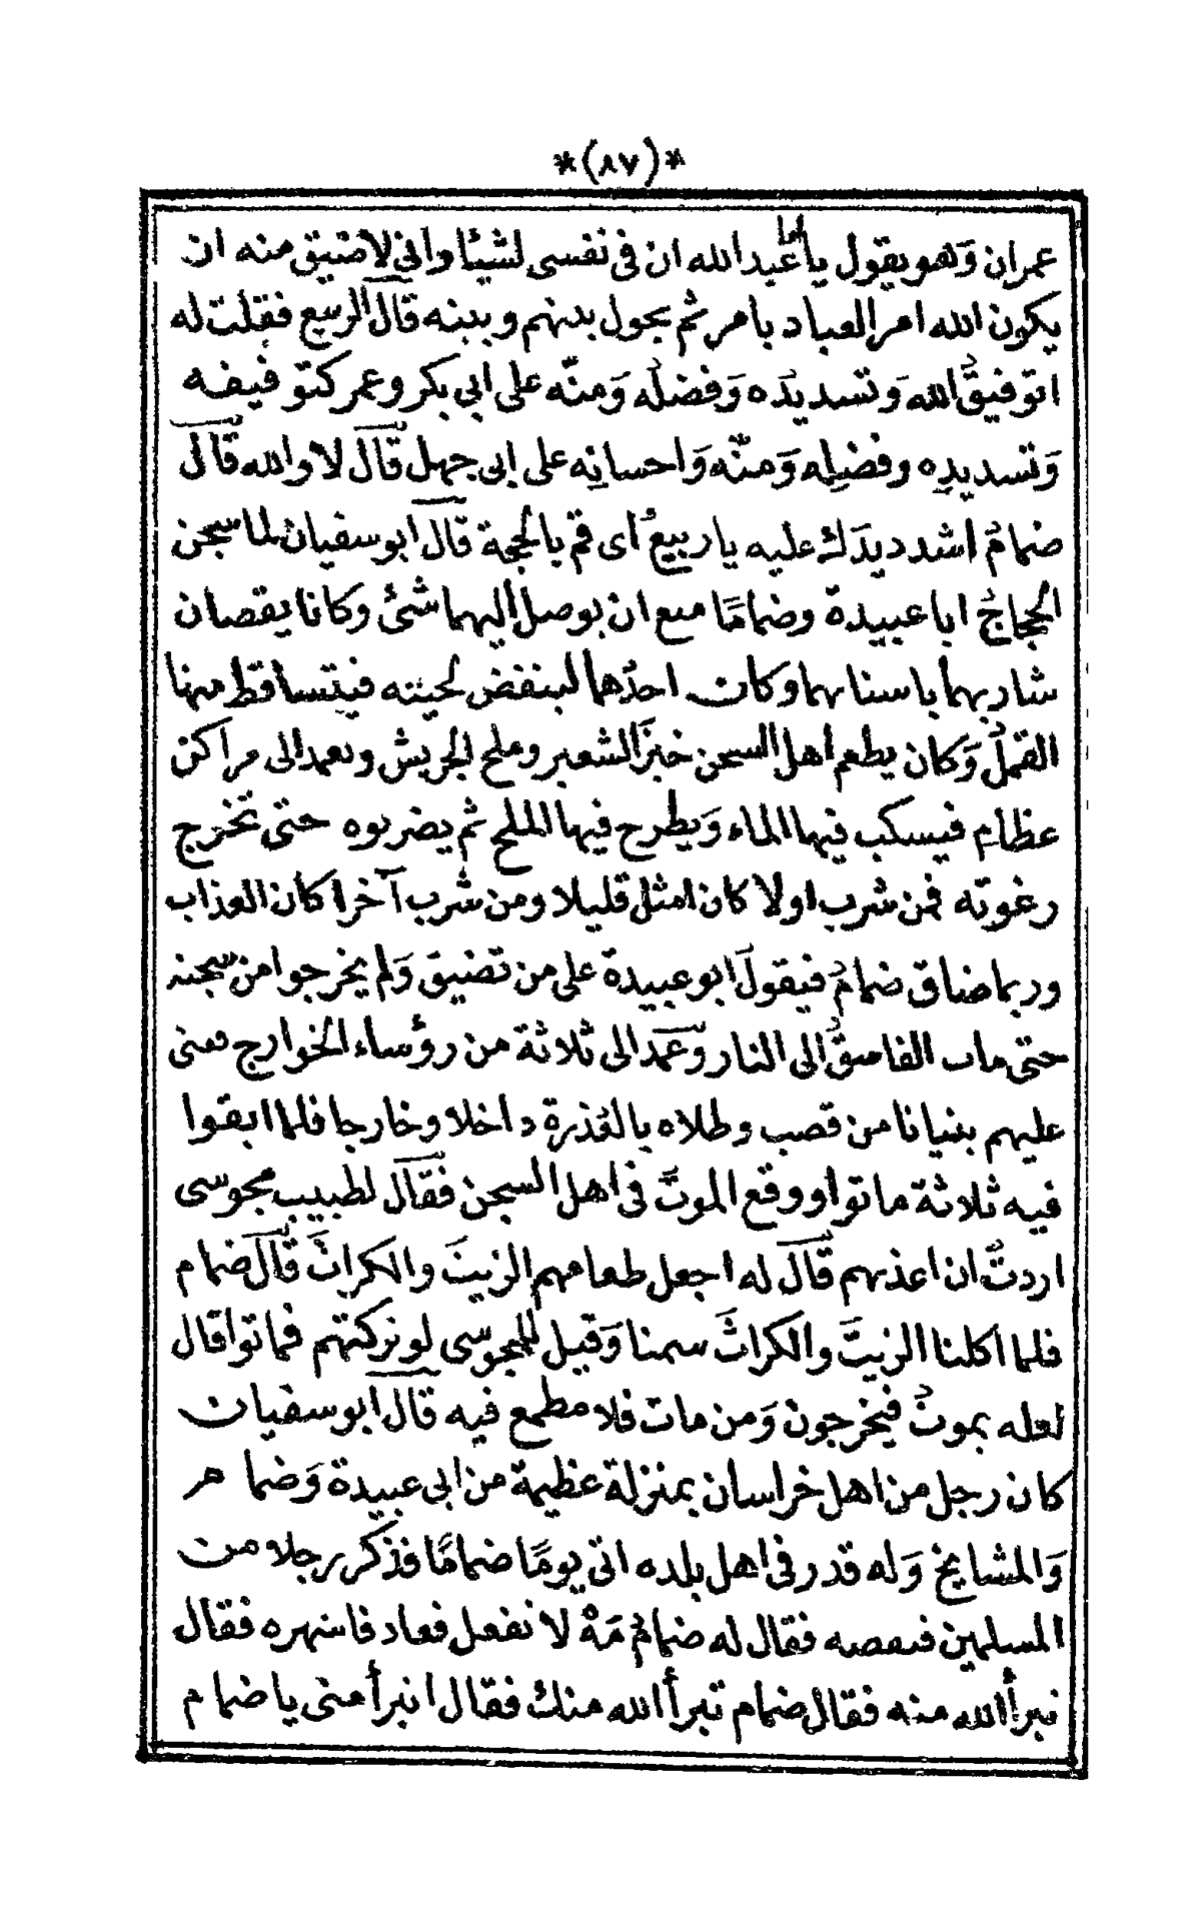 *(٨٧)*
عمران وَهو يقول يا أبا عبد الله ان فى نفسى لشيئا وانى لاضيق منه ان
يكون الله امر العباد بامر ثم يحول بينهم وبينه قال الربيع فقلت له
اتوفيقُ الله وَتسديدُه وَفضلُه وَمنّه على ابى بكر وعمر كتوفيقه
وَتسديدِه وفضلِه وَمنّه وَاحسانِه على ابى جهل قال لا والله قال
ضمامُ اشدد يدَك عليه يا ربيعُ اى قم بالحجة قال ابو سفيان لما سجن
الحجاجُ ابا عبيدة وضمامًا منع ان يوصل اليهما شئ وكانا يقصان
شاربهما باسنانهما وكان احدُهما لينفض لحيته فيتساقط منها
القملُ وَكان يطعم اهل السجن خبزَ الشعير وملح الجريش ويعمد الى مراكن
عظام فيسكب فيها الماء وَيطرح فيها الملح ثم يضربوه حتى تخرج
رغوته فمن شرب اولا كان امثل قليلا ومن شرب آخرا كان العذاب
وربما ضاق ضمامُ فيقول ابو عبيدة على من تضيق وَلم يخرجوا من سجنه
حتى مات الفاسقُ الى النار وَعمد الى ثلاثة من رؤساء الخوارج فبنى
عليهم بنيانا من قصب وطلاه بالعُذرة داخلا وخارجا فلما ابقوا
فيه ثلاثة ماتوا ووقع الموتُ فى اهل السجن فقال لطبيب مجوسى
اردتُ ان اعذبهم قال له اجعل طعامهم الزيتَ والكراثَ قال ضمام
فلما اكلنا الزيتَ والكراثَ سمنا وَقيل للمجوسى لو تركتهم فماتوا قال
لعله يموتُ فيخرجون وَمن مات فلا مطمع فيه قال ابو سفيان
كان رجل من اهل خراسان بمنزلة عظيمة من ابى عبيدة وَضمام
وَالمشايخ وَله قدر فى اهل بلده اتى يومًا ضمامًا فذكر رجلا من
المسلمين فنقصه فقال له ضمامُ مَهْ لا تفعل فعاد فانتهره فقال
نبرأ الله منه فقال ضمام تبرأ الله منك فقال اتبرأ منى يا ضمام